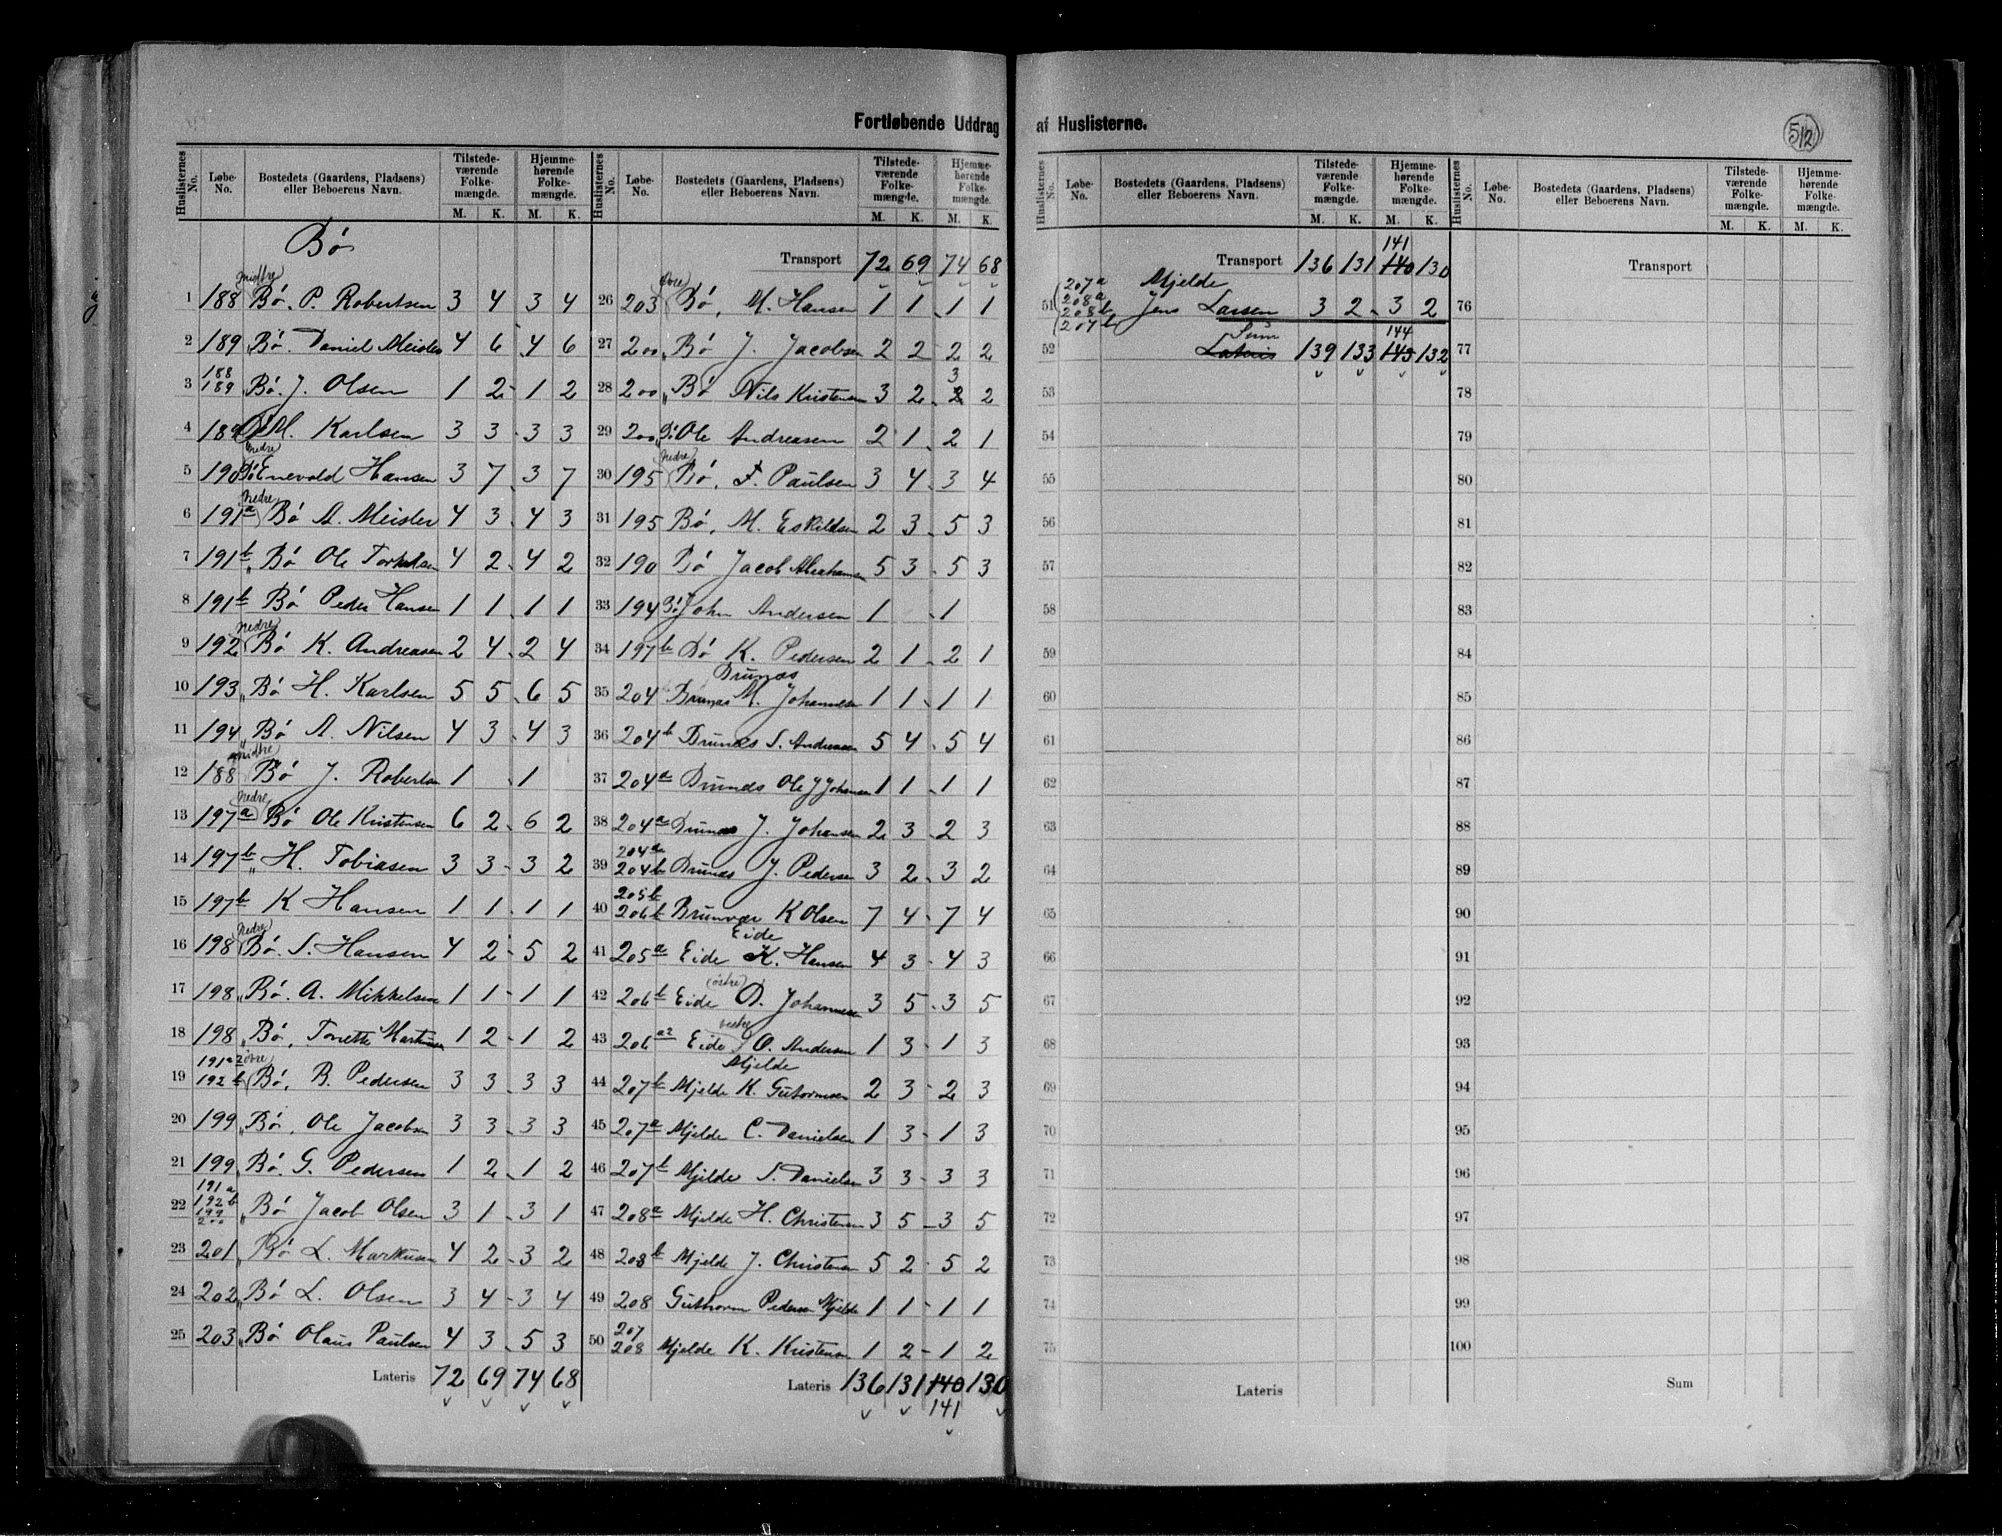 Fortløbende Uddrag af Huslisterne.
512
Huslisternes No. Løbe-No. Bostedets (Gaardens, Pladsens) eller Beboerens Navn. Tilstedeværende Folkemængde. M. K. Hjemmehørende Folkemængde. M. K.
Bø
1 188 midtre Bø. P. Robertsen 3 4 3 4
2 189 Bø. Daniel Meister 4 6 4 6
3 188 189 Bø. J. Olsen 1 2 - 1 2
4 189 M. Karlsen 3 3 - 3 3
5 190 nedre Bø Enevold Hansen 3 7 - 3 7
6 191a nedre Bø A. Meister 4 3 - 4 3
7 191b " Bø Ole Torkildsen 4 2 - 4 2
8 191b Bø Peder Hansen 1 1 - 1 1
9 192 nedre Bø K. Andreasen 2 4 - 2 4
10 193 " Bø H. Karlsen 5 5 - 6 5
11 194 Bø A. Nilsen 4 3 - 4 3
12 188 midtre Bø J. Robertsen 1 - 1
13 197a nedre Bø Ole Kristensen 6 2 - 6 2
14 197b " H. Tobiasen 3 3 - 3 2
15 197b K Hansen 1 1 - 1 1
16 198 nedre Bø. S. Hansen 4 2 - 5 2
17 198 " Bø. A. Mikkelsen 1 1 - 1 1
18 198 " Bø, Tonette Markusen 1 2 - 1 2
19 191a2 192b øvre Bø, B. Pedersen 3 3 - 3 3
20 199 " Bø, Ole Jacobsen 3 3 - 3 3
21 199 Bø. G. Pedersen 1 2 - 1 2
22 191a 192b 199 200 " Bø Jacob Olsen 3 1 - 3 1
23 201 " Bø L. Markusen 4 2 - 3 2
24 202 " Bø L. Olsen 3 4 - 3 4
25 203 " Bø Olaus Paulsen 4 3 - 5 3
Lateris 72 69 74 68
Huslisternes No. Løbe-No. Bostedets (Gaardens, Pladsens) eller Beboerens Navn. Tilstedeværende Folkemængde. M. K. Hjemmehørende Folkemængde. M. K.
Transport 72 69 74 68
26 203 øvre Bø, M. Hansen 1 1 - 1 1
27 200 " Bø J. Jacobsen 2 2 - 2 2
28 200 " Bø Nils Kristensen 3 2 - 2 3 2
29 200 " Bø Ole Andreasen 2 1 - 2 1
30 195 nedre Bø, F. Paulsen 3 4 - 3 4
31 195 Bø, M. Eskildsen 2 3 - 5 3
32 190 Bø Jacob Abrahamsen 5 3 - 5 3
33 194 Bø John Andersen 1 - 1
34 197b Bø K. Pedersen 2 1 - 2 1
Brunæs
35 204 Brunæs M. Johannesen 1 1 - 1 1
36 204b Brunæs S. Andreasen 5 4 - 5 4
37 204a Brunæs Ole J Johansen 1 1 - 1 1
38 204a Brunæs J. Johansen 2 3 - 2 3
39 204a 204b Brunæs J. Pedersen 3 2 - 3 2
40 205b 206b Brunvær K Olsen 7 4 - 7 4
Eide
41 205a Eide K. Hansen 4 3 - 4 3
42 206b Eide (østre) D. Johannesen 3 5 - 3 5
43 206a2 Eide vestre O. Andersen 1 3 - 1 3
Mjelde
44 207b Mjelde K. Gutormsen 2 3 - 2 3
45 207a Mjelde C. Danielsen 1 3 - 1 3
46 207b Mjelde S. Danielsen 3 3 - 3 3
47 208a Mjelde H. Christensen 3 5 - 3 5
48 208b Mjelde J. Christensen 5 2 - 5 2
49 208 Guthorm Pedersen Mjelde 1 1 - 1 1
50 207 208 Mjelde K. Kristensen 1 2 - 1 2
Lateris 136 131 140 130
141
Huslisternes No. Løbe-No. Bostedets (Gaardens, Pladsens) eller Beboerens Navn. Tilstedeværende Folkemængde. M. K. Hjemmehørende Folkemængde. M. K.
141
Transport 136 131 140 130
51 207a 208a 208b 207b Mjelde Jens Larsen 3 2 - 3 2
Sum 144
52 Lateris 139 133 143 132
53
54
55
56
57
58
59
60
61
62
63
64
65
66
67
68
69
70
71
72
73
74
75
Lateris
Huslisternes No. Løbe-No. Bostedets (Gaardens, Pladsens) eller Beboerens Navn. Tilstedeværende Folkemængde. M. K. Hjemmehørende Folkemængde. M. K.
Transport
76
77
78
79
80
81
82
83
84
85
86
87
88
89
90
91
92
93
94
95
96
97
98
99
100
Sum